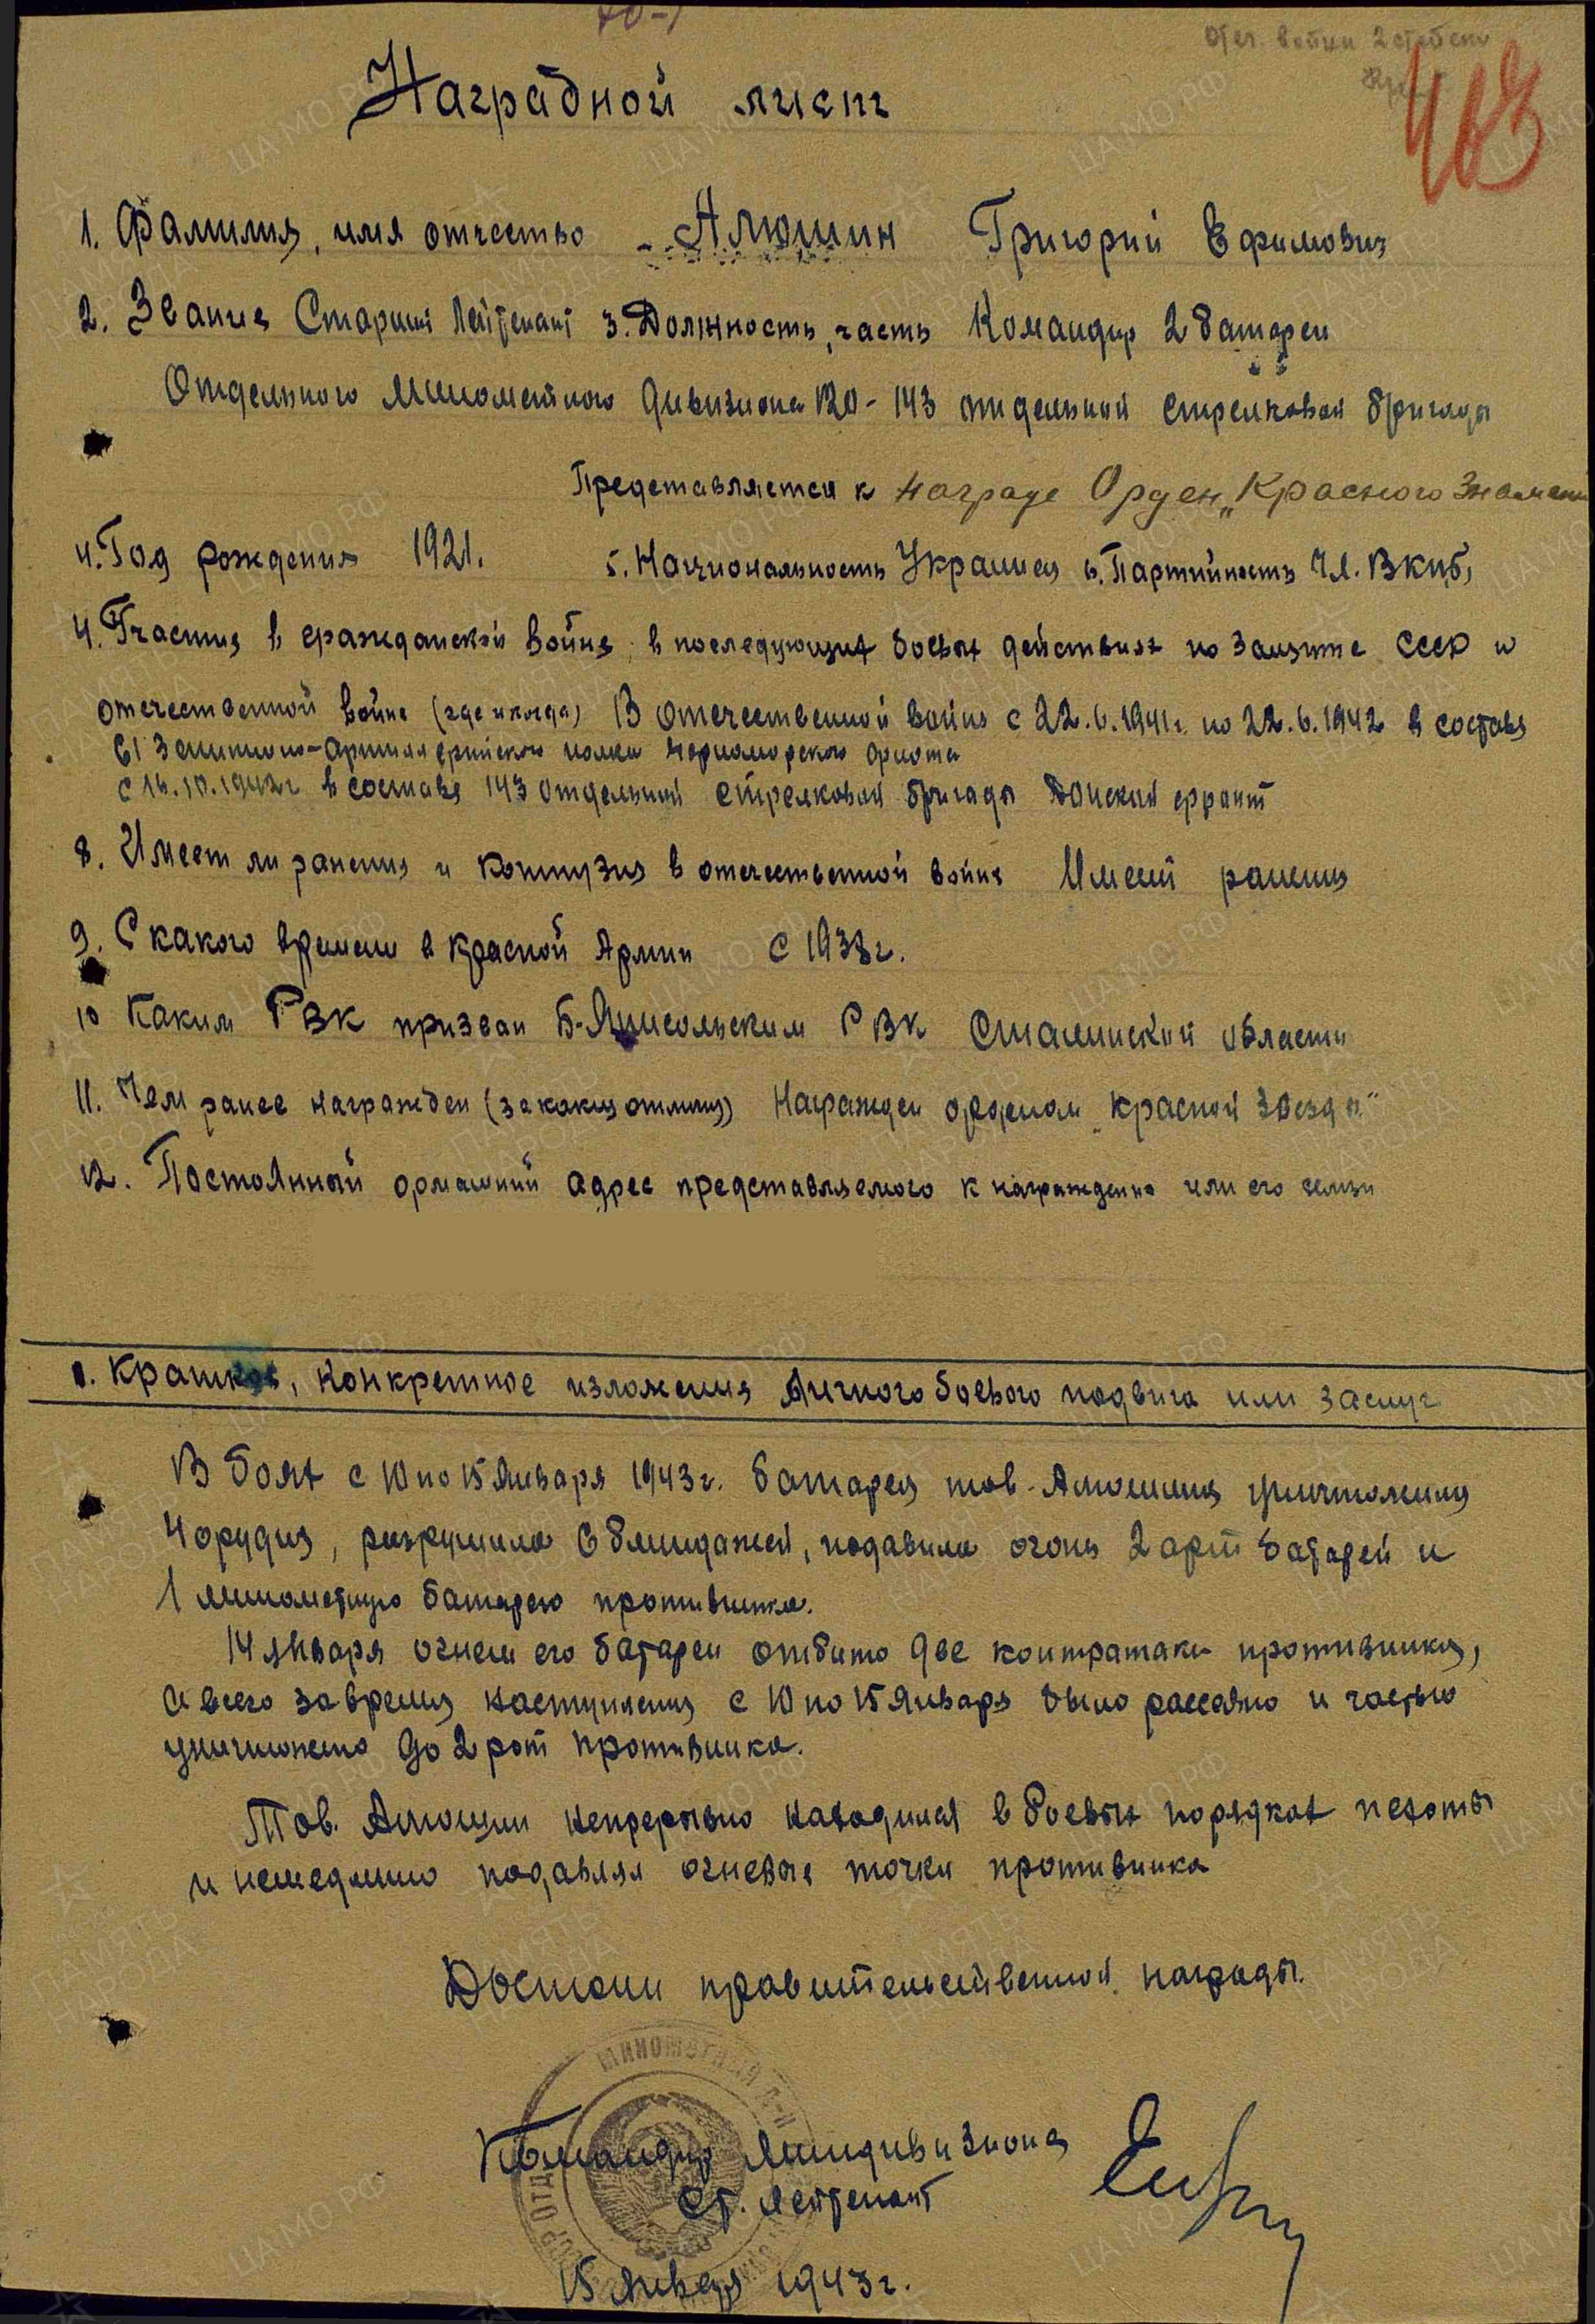 Отеч. войны 2 степени
463
Наградной лист
1. Фамилия, имя отчество - Алюшин Григорий Ефимович
2. Звание Старший Лейтенант 3. Должность, часть Командир 2 батареи
Отдельного Минометного дивизиона 120 - 143 отдельной стрелковой бригады
Представляется к награде Орден „Красного Знамени
4. Год рождения 1921. 5. Национальность Украинец 6. Партийность Чл. ВКП(б)
Участия в гражданской войне, в последующих боевых действиях по защите СССР и
отечественной войне (где и когда) В отечественной войне с 22.6.1941г. по 22.6.1942 в составе
61 Зенитного-артиллерийского полка Черноморского флота
с 16.10.1942г в составе 143 отдельной стрелковой бригады Донской фронт
8. Имеет ли ранения и контузия в отечественной войне Имеет ранения
9. С какого времени в Красной Армии с 1938г.
10 Каким РВК призван Б-Янисольским РВК Сталинской области
11. Чем ранее награжден (за какие отличия) Награжден орденом „Красной Звезды"
12. Постоянный домашний адрес представляемого к награждению или его семьи
1. Краткое, конкретное изложения личного боевого подвига или заслуг
В боях с 10 по 15 Января 1943г. батарея тов. Алюшина уничтожила
4 орудия, разрушила 6 блиндажей, подавила огонь 2 арт батарей и
1 минометную батарею противника.
14 января огнем его батареи отбито две контратаки противника,
а всего за время наступления с 10 по 15 Января было рассеяно и частью
уничтожено до 2 рот противника.
Тов. Алюшин непрерывно находился в боевых порядках пехоты
и немедленно подавлял огневые точки противника
Достоин правительственной награды.
Командир Миндивизиона
Ст. лейтенант
15 Января 1943г.